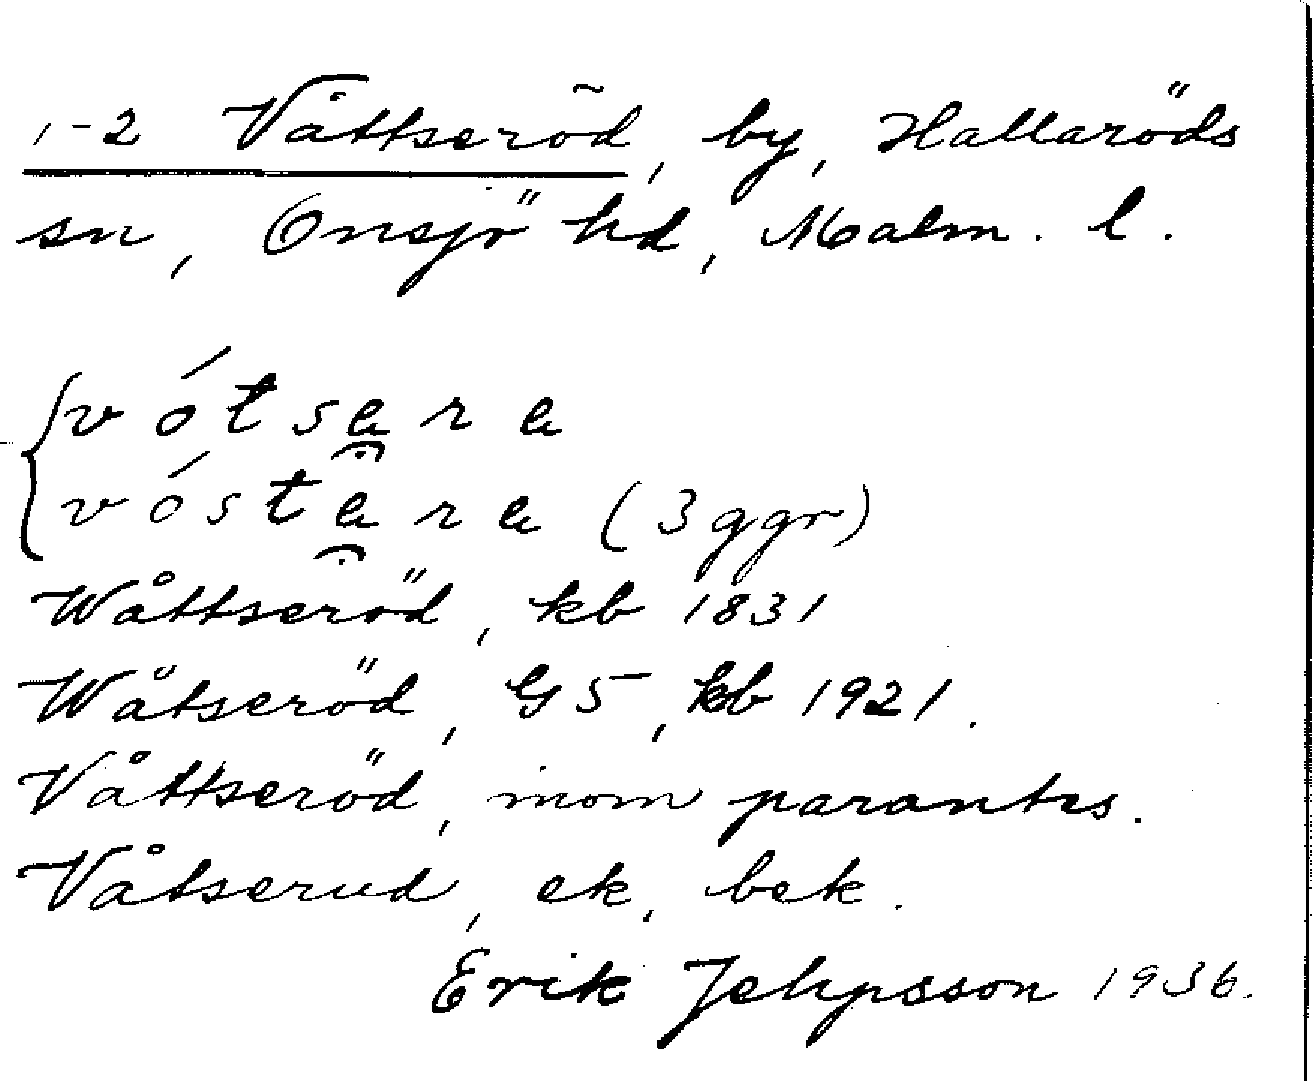 1-2 Våttseröd, by, Hallaröds
sn, Onsjö hd, Malm. l.
vótsara
vóstara (3 ggr)
Wåttseröd, kb 1831
Wåtseröd, G5, kb 1921.
Våttseröd, inom parantes.
Våtserud, ek. bek.
Erik Jehpsson 1936.